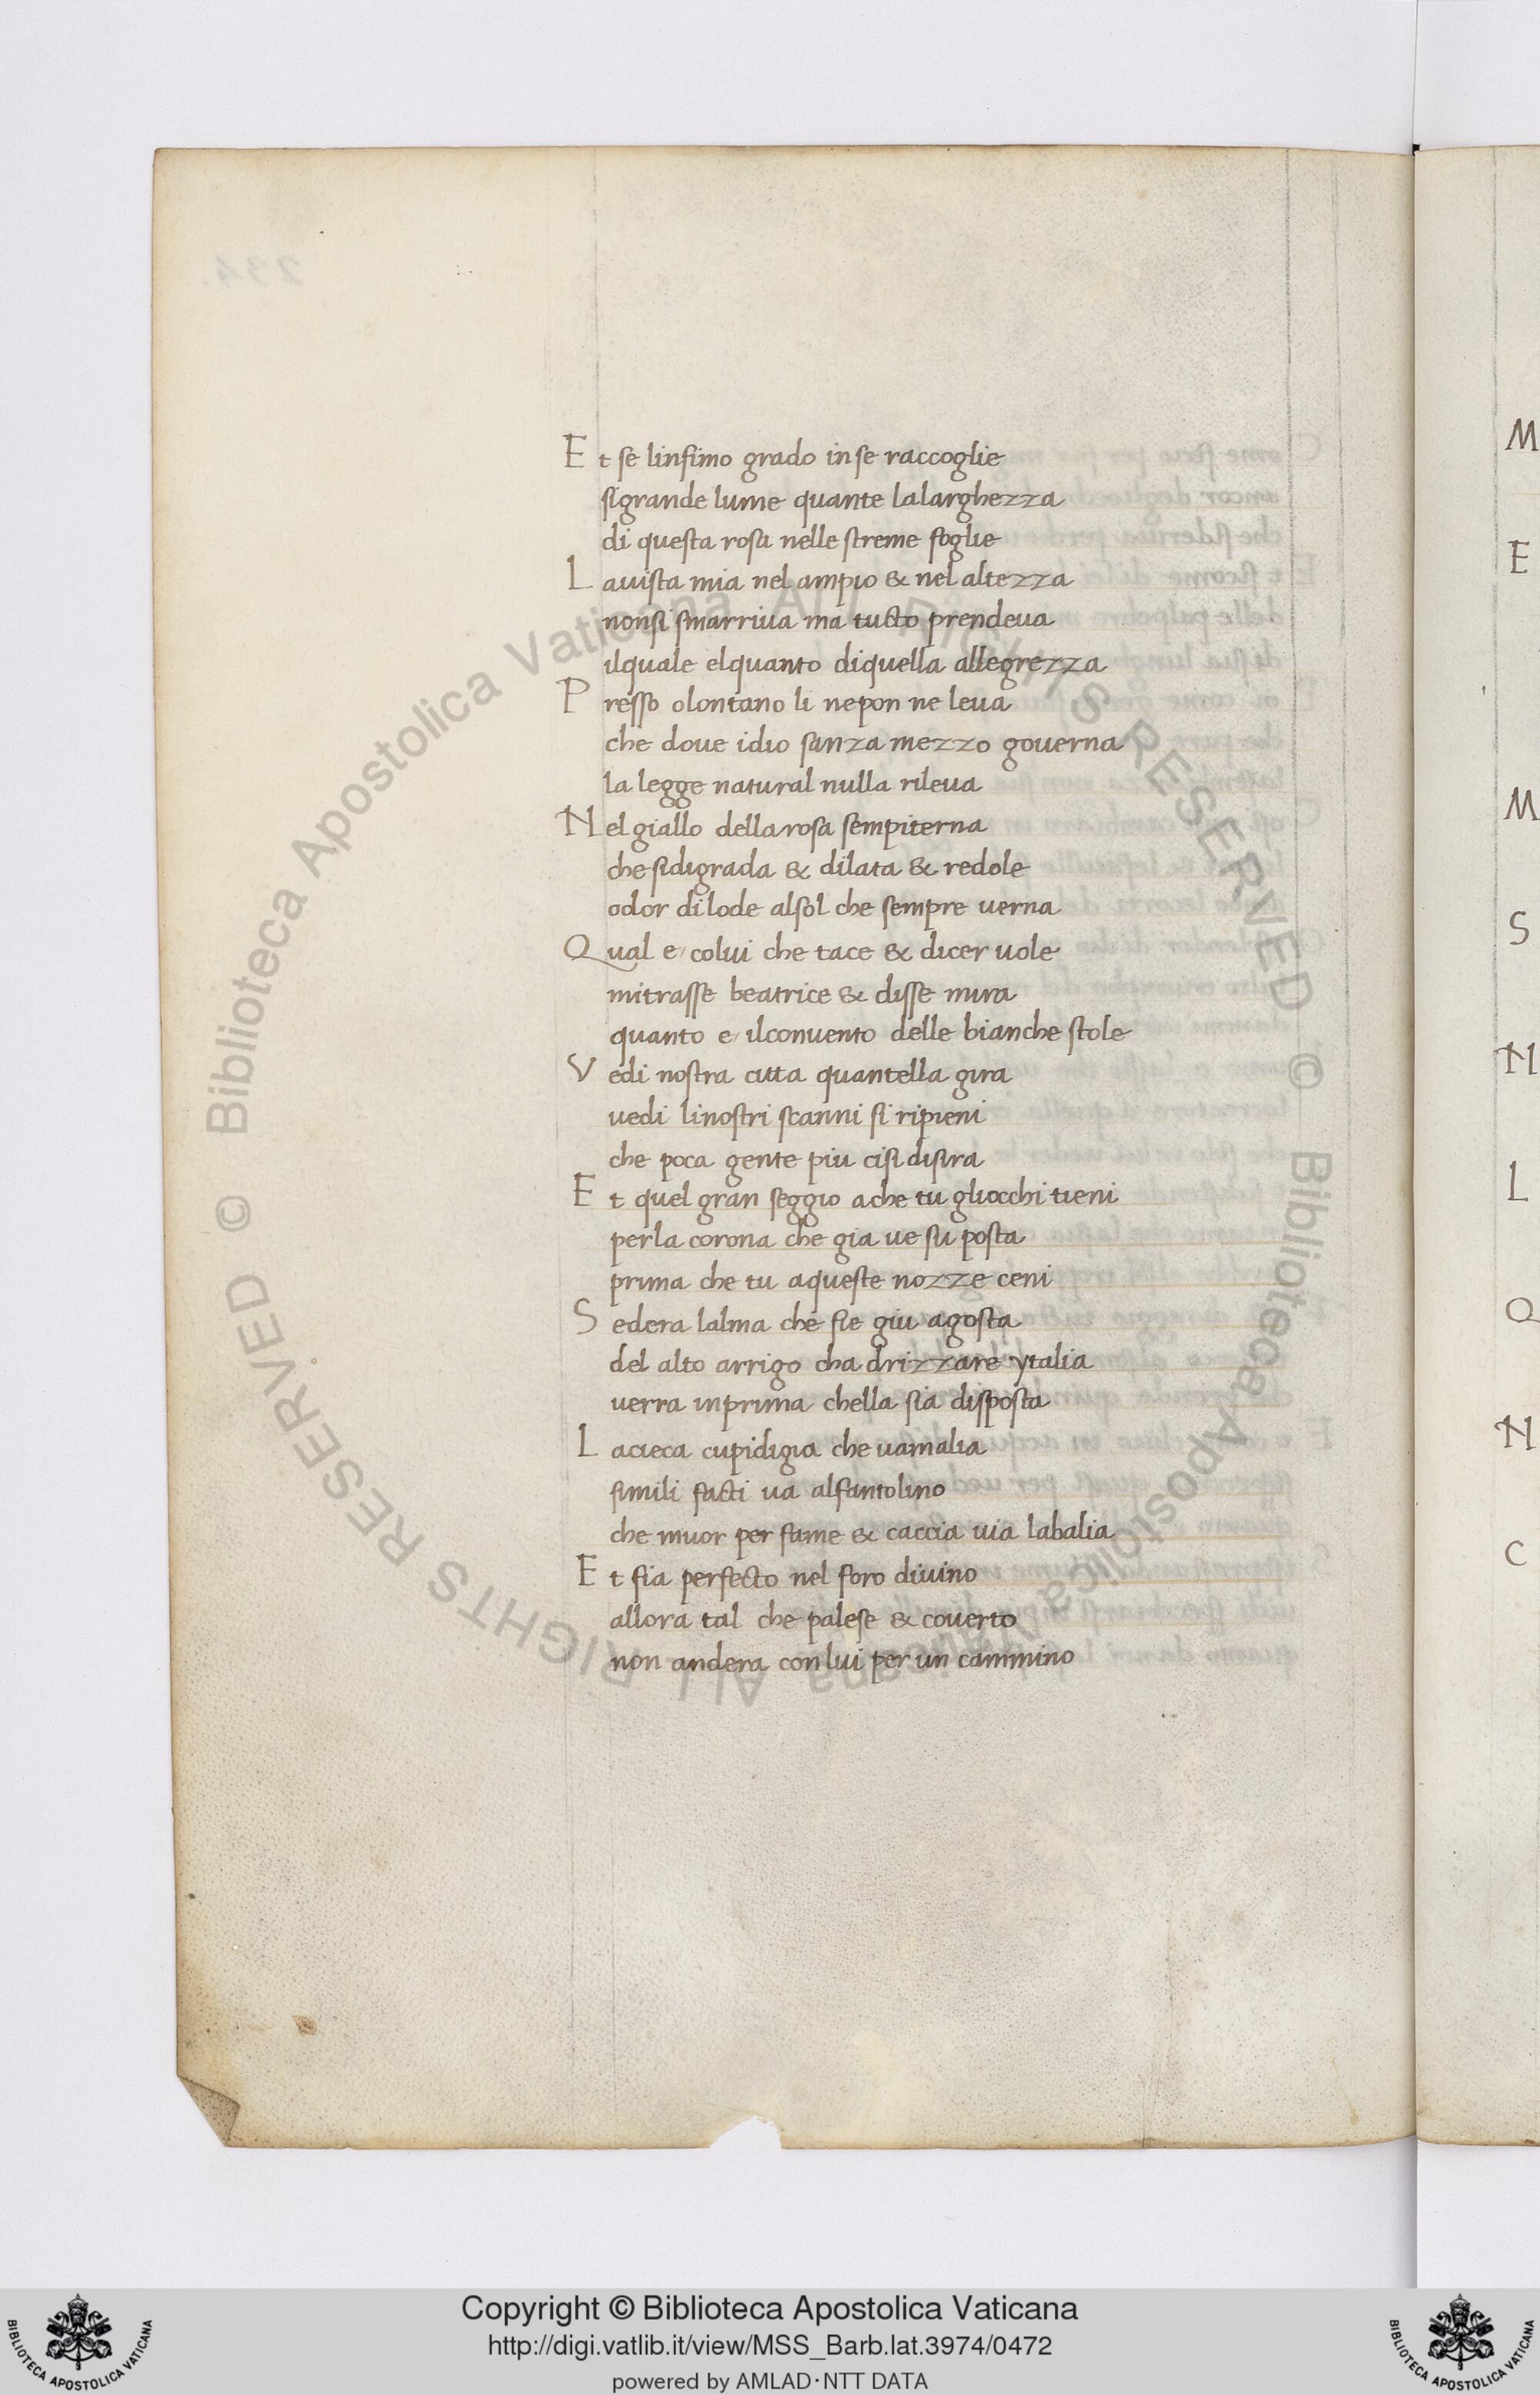 Et se linfimo grado in se raccoglie
sigrande lume quante lalarghezza
di questa rosa nelle streme foglie
Lauista mia nel ampio & nel altezza
nonsi smarriua ma tucto prendeua
ilquale elquanto diquella allegrezza
Presso olontano li nepon ne leua
che doue idio sanza mezzo gouerna
la legge natural nulla rileua
Nel giallo dellarosa sempiterna
che sidigrada & dilata & redole
odor dilode alsol che sempre uerna
Qual e colui che tace & dicer uole
mitrasse beatrice & disse mira
quanto e ilconuento delle bianche stole
Vedi nostra citta quantella gira
uedi linostri scanni si ripieni
che poca gente piu cisi disira
Et quel gran seggio ache tu gliocchi tieni
perla corona che gia ue su posta
prima che tu aqueste nozze ceni
Sedera lalma che fie giu agosta
del alto arrigo cha drizzare ytalia
uerra inprima chella sia disposta
Lacieca cupidigia che uamalia
simili facti ua alfantolino
che muor per fame & caccia uia labalia
Et fia perfecto nel foro diuino
allora tal che palese & couerto
non andera conlui per un cammino
M
E
M
S
N
L
Q
N
C
234.
© Biblioteca Apostolica Vaticana ALL RIGHTS RESERVED © Biblioteca Apostolica Vaticana ALL RIGHTS RESERVED
Copyright © Biblioteca Apostolica Vaticana
http://digi.vatlib.it/view/MSS_Barb.lat.3974/0472
powered by AMLAD·NTT DATA
BIBLIOTECA APOSTOLICA VATICANA
BIBLIOTECA APOSTOLICA VATICANA